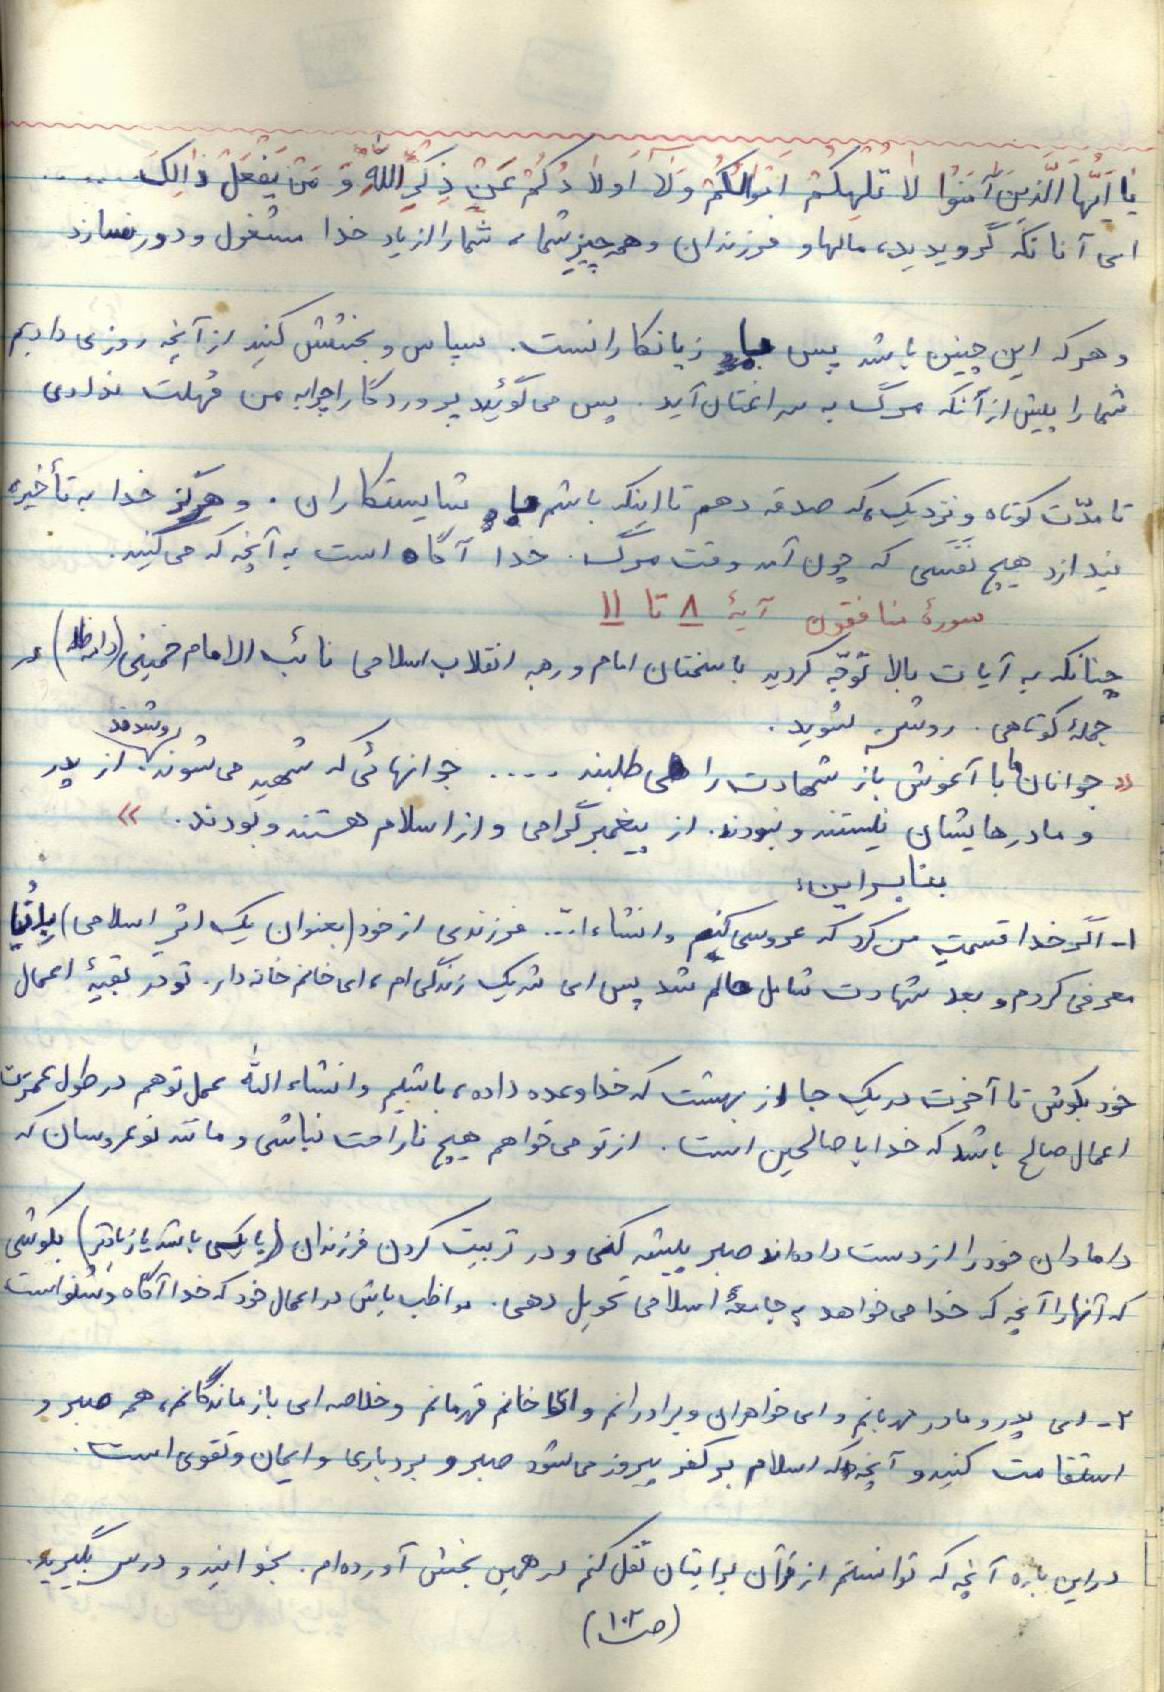 یا اَیُّهَا الَّذینَ آمَنُوا لا تُلْهِکُمْ اَموالُکُمْ وَلا اَولادُکُمْ عَنْ ذِکْرِ اللّهِ وَ مَنْ یَفْعَلْ ذالِکَ ......
ای آنانکه گرویدید، مالها و فرزندان و همه چیز شما، شما را از یاد خدا مشغول و دور نسازد
و هر که این چنین باشد پس زیانکار است. سپاس و بخشش کنید از آنچه روزی دادیم
شما را پیش از آنکه مرگ به سراغتان آید. پس می گوئید پروردگارا چرا به من مُهلت ندادی
تا مدّت کوتاه و نزدیک، که صدقه دهم تا اینکه باشم شایستکاران. و هرگز خدا به تأخیر
نیندازد هیچ نَفْسی که چون آمد وقت مرگ. خدا آگاه است به آنچه که می کنید.
سورهٔ منافقون آیهٔ ۸ تا ۱۱
چنانکه به آیات بالا توجّه کردید با سخنان امام و رهبر انقلاب اسلامی نائب الامام خمینی (دامه ظله) در
جملهٔ کوتاهی. روشن شوید.
«جوانان ما با آغوش باز شهادت را می طلبند .... جوانهائی که شهید می شوند و شدند. از پدر
و مادرهایشان نیستند و نبودند. از پیغمبر گرامی و از اسلام هستند و بودند.»
بنابراین:
۱- اگر خدا قسمت من کرد که عروسی کنم و انشاءا... فرزندی از خود (بعنوان یک اثر اسلامی)
معرفی کردم و بعد شهادت شامل حالم شد پس ای شریک زندگی ام، ای خانم خانه دار. تو در بقیهٔ اعمال
خود بکوش تا آخرت در یک جا از بهشت که خدا وعده داده، باشیم و انشاء اللّه عمل تو هم در طول عمرت
اعمال صالح باشد که خدا با صالحین است. از تو می خواهم هیچ ناراحت نباشی و مانند نوعروسان که
دامادان خود را از دست داده اند صبر پیشه کنی و در تربیت کردن فرزندان (یا یکی باشد یا زیادتر) بکوشی
که آنها را آنچه که خدا می خواهد به جامعهٔ اسلامی تحویل دهی. مواظب باش در اعمال خود که خدا آگاه و شنوا است
۲- ای پدر و مادر مهربانم و ای خواهران و برادرانم و خانم قهرمانم و خلاصه ای بازماندگانم، همه صبر و
استقامت کنید و آنچه که اسلام بر کفر پیروز می شود صبر و بردباری و ایمان و تقوی است.
در این باره آنچه که توانستم از قرآن برایتان نقل کنم در همین بخش آورده ام. بخوانید و درس بگیرید.
(ص ۱۰۲)